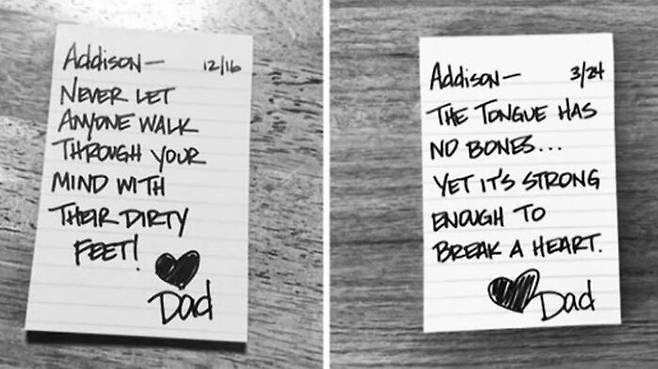 Addison— 12/16
NEVER LET
ANYONE WALK
THROUGH YOUR
MIND WITH
THEIR DIRTY
FEET!
Dad
Addison— 3/24
THE TONGUE HAS
NO BONES...
YET IT'S STRONG
ENOUGH TO
BREAK A HEART.
Dad